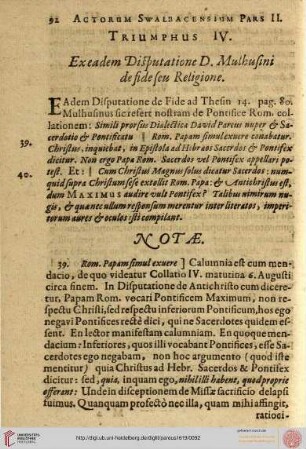 92 ACTORUM SWALBACENSIUM PARS II.
TRIUMPHUS IV.
Ex eadem Disputatione D. Mulhusini
de fide seu Religione.
EAdem Disputatione de Fide ad Thesin 14. pag. 80.
Mulhusinus sic refert nostram de Pontifice Rom. col-
lationem: Simili prorsus Dialectica David Pareus nuper & Sa-
cerdotio & Pontificatu | Rom. Papam simul exuere conabatur.
39.
Christus, inquiebat, in Epistola ad Hebræos Sacerdos & Pontifex
dicitur. Non ergo Papa Rom. Sacerdos vel Pontifex appellari po-
40.
test. Et: | Cum Christus Magnus solus dicatur Sacerdos: num-
quid supra Christum sese extollit Rom. Papa: & Antichristus est,
dum MAXIMUS audire cuvit Pontifex? Talibus nimirum nu-
gis, & quantecullum responsum merentur inter literatos, imperi-
torum aures & oculos isti compilant.
NOTÆ.
39. Rom. Papam simul exuere ] Calumnia est cum men-
dacio, de quo videatur Collatio IV. matutina 6. Augusti
circa finem. In Disputatione de Antichristo cum dicere-
tur, Papam Rom. vocari Pontificem Maximum, non re-
spectu Christi, sed respectu inferiorum Pontificum, hos ego
negavi Pontifices recte dici, qui ne Sacerdotes quidem es-
sent. En lector manifestam calumniam. En quoque men-
dacium: Inferiores, quos illi vocabant Pontifices, esse Sa-
cerdotes ego negabam, non hoc argumento (quod iste
mentitur) quia Christus ad Hebr. Sacerdos & Pontifex
dicitur: sed, quia, inquam ego, nihil illi habent, quod proprie
offerant: Unde in disceptionem de Missæ sacrificio delapsi
fuimus. Quanquam profectò nec illa, quam mihi affingit,
ratioci-
http://digi.ub.uni-heidelberg.de/diglit/pareus1619/0092
UNIVERSITÄTS-
BIBLIOTHEK
HEIDELBERG